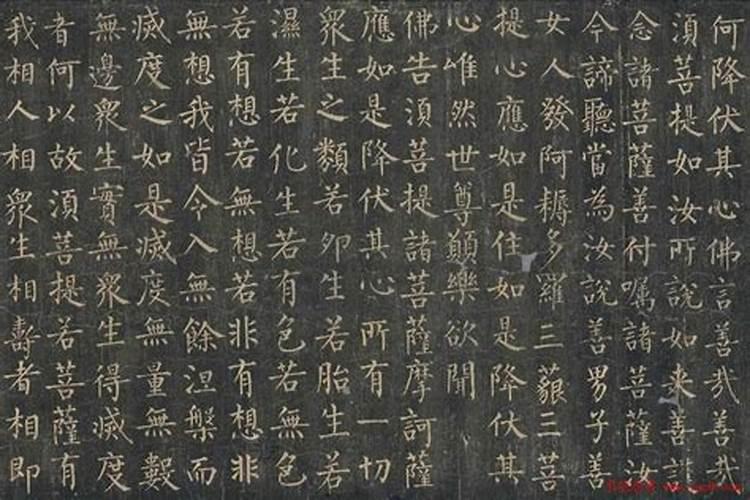 何降伏其心佛言善哉善哉
須菩提如汝所說如来善護
念諸菩薩善付囑諸菩薩汝
今諦聽當為汝說善男子善
女人發阿耨多羅三藐三菩
提心應如是住如是降伏其
心唯然世尊願樂欲聞
佛告須菩提諸菩薩摩訶薩
應如是降伏其心所有一切
眾生之類若卵生若胎生若
濕生若化生若有色若無色
若有想若無想若非有想非
無想我皆令入無餘涅槃而
滅度之如是滅度無量無數
無邊眾生實無眾生得滅度
者何以故須菩提若菩薩有
我相人相眾生相壽者相即